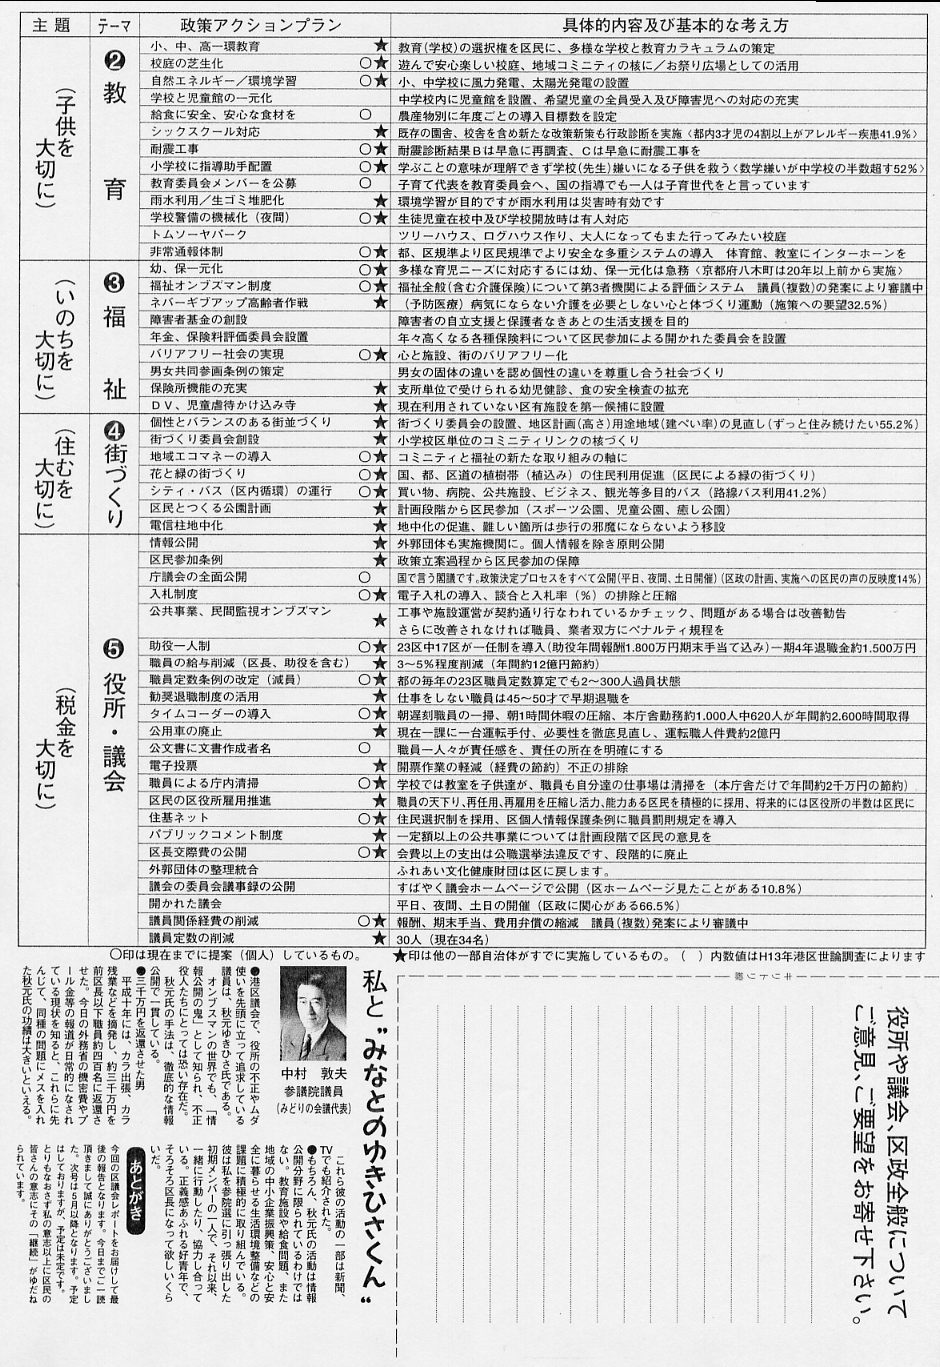 主題 テーマ 政策アクションプラン 具体的内容及び基本的な考え方
(子供を大切に)
❷教育
小、中、高一環教育 ★ 教育(学校)の選択権を区民に、多様な学校と教育カラキュラムの策定
校庭の芝生化 ○★ 遊んで安心楽しい校庭、地域コミニティの核に/お祭り広場としての活用
自然エネルギー/環境学習 ○★ 小、中学校に風力発電、太陽光発電の設置
学校と児童館の一元化 中学校内に児童館を設置、希望児童の全員受入及び障害児への対応の充実
給食に安全、安心な食材を ○ 農産物別に年度ごとの導入目標数を設定
シックスクール対応 ★ 既存の園舎、校舎を含め新たな改築新築も行政診断を実施〈都内3才児の4割以上がアレルギー疾患41.9%〉
耐震工事 ○★ 耐震診断結果Bは早急に再調査、Cは早急に耐震工事を
小学校に指導助手配置 ○★ 学ぶことの意味が理解できず学校(先生)嫌いになる子供を救う〈数学嫌いが中学校の半数超す52%〉
教育委員会メンバーを公募 ○ 子育て代表を教育委員会へ、国の指導でも一人は子育世代をと言っています
雨水利用/生ゴミ堆肥化 ★ 環境学習が目的ですが雨水利用は災害時有効です
学校警備の機械化(夜間) ○★ 生徒児童在校中及び学校開放時は有人対応
トムソーヤパーク ツリーハウス、ログハウス作り、大人になってもまた行ってみたい校庭
非常通報体制 ○★ 都、区規準より区民規準でより安全な多重システムの導入 体育館、教室にインターホーンを
(いのちを大切に)
❸福祉
幼、保一元化 ○★ 多様な育児ニーズに対応するには幼、保一元化は急務〈京都府八木町は20年以上前から実施〉
福祉オンブズマン制度 ○★ 福祉全般(含む介護保険)について第3者機関による評価システム 議員(複数)の発案により審議中
ネバーギブアップ高齢者作戦 ★ (予防医療)病気にならない介護を必要としない心と体づくり運動(施策への要望32.5%)
障害者基金の創設 障害者の自立支援と保護者なきあとの生活支援を目的
年金、保険料評価委員会設置 年々高くなる各種保険料について区民参加による開かれた委員会を設置
バリアフリー社会の実現 ○★ 心と施設、街のバリアフリー化
男女共同参画条例の策定 男女の固体の違いを認め個性の違いを尊重し合う社会づくり
保険所機能の充実 ★ 支所単位で受けられる幼児健診、食の安全検査の拡充
DV、児童虐待かけ込み寺 ★ 現在利用されていない区有施設を第一候補に設置
(住むを大切に)
❹街づくり
個性とバランスのある街並づくり ★ 街づくり委員会の設置、地区計画(高さ)用途地域(建ぺい率)の見直し(ずっと住み続けたい55.2%)
街づくり委員会創設 ★ 小学校区単位のコミニティリンクの核づくり
地域エコマネーの導入 ○★ コミニティと福祉の新たな取り組みの軸に
花と緑の街づくり ○★ 国、都、区道の植樹帯(植込み)の住民利用促進(区民による緑の街づくり)
シティ・バス(区内循環)の運行 ○★ 買い物、病院、公共施設、ビジネス、観光等多目的バス(路線バス利用41.2%)
区民とつくる公園計画 ★ 計画段階から区民参加(スポーツ公園、児童公園、癒し公園)
電信柱地中化 ★ 地中化の促進、難しい箇所は歩行の邪魔にならないよう移設
(税金を大切に)
❺役所・議会
情報公開 ★ 外郭団体も実施機関に。個人情報を除き原則公開
区民参加条例 ★ 政策立案過程から区民参加の保障
庁議会の全面公開 ○ 国で言う閣議です。政策決定プロセスをすべて公開(平日、夜間、土日開催)(区政の計画、実施への区民の声の反映度14%)
入札制度 ○★ 電子入札の導入、談合と入札率(%)の排除と圧縮
公共事業、民間監視オンブズマン ★ 工事や施設運営が契約通り行なわれているかチェック、問題がある場合は改善勧告
さらに改善されなければ職員、業者双方にペナルティ規程を
助役一人制 ○★ 23区中17区が一任制を導入(助役年間報酬1.800万円期末手当て込み)一期4年退職金約1.500万円
職員の給与削減(区長、助役を含む) ★ 3〜5%程度削減(年間約12億円節約)
職員定数条例の改定(減員) ○★ 都の毎年の23区職員定数算定でも2〜300人過員状態
勧奨退職制度の活用 ★ 仕事をしない職員は45〜50才で早期退職を
タイムコーダーの導入 ○★ 朝遅刻職員の一掃、朝1時間休暇の圧縮、本庁舎勤務約1.000人中620人が年間約2.600時間取得
公用車の廃止 ★ 現在一課に一台運転手付、必要性を徹底見直し、運転職人件費約2億円
公文書に文書作成者名 ○ 職員一人々が責任感を、責任の所在を明確にする
電子投票 ★ 開票作業の軽減(経費の節約)不正の排除
職員による庁内清掃 ○★ 学校では教室を子供達が、職員も自分達の仕事場は清掃を(本庁舎だけで年間約2千万円の節約)
区民の区役所雇用推進 ★ 職員の天下り、再任用、再雇用を圧縮し活力、能力ある区民を積極的に採用、将来的には区役所の半数は区民に
住基ネット ○★ 住民選択制を採用、区個人情報保護条例に職員罰則規定を導入
パブリックコメント制度 ★ 一定額以上の公共事業については計画段階で区民の意見を
区長交際費の公開 ○★ 会費以上の支出は公職選挙法違反です、段階的に廃止
外郭団体の整理統合 ふれあい文化健康財団は区に戻します。
議会の委員会議事録の公開 すばやく議会ホームページで公開(区ホームページ見たことがある10.8%)
開かれた議会 平日、夜間、土日の開催(区政に関心がある66.5%)
議員関係経費の削減 ○★ 報酬、期末手当、費用弁償の縮減 議員(複数)発案により審議中
議員定数の削減 ★ 30人(現在34名)
○印は現在までに提案(個人)しているもの。 ★印は他の一部自治体がすでに実施しているもの。( )内数値はH13年港区世論調査によります
私と“みなとのゆきひさくん”
中村 敦夫
参議院議員
(みどりの会議代表)
●港区議会で、役所の不正やムダ
使いを先頭に立って追求している
議員は、秋元ゆきひさ氏である。
オンブズマンの世界でも、「情
報公開の鬼」として知られ、不正
役人たちにとっては恐い存在だ。
秋元氏の手法は、徹底的な情報
公開で一貫している。
●三千万円を返還させた男
平成十年には、カラ出張、カラ
残業などを摘発し、約三千万円を
前区長以下職員約四百名に返還さ
せた。今日の外務省の機密費やプ
ール金等の報道が日常的になされ
ている現状を知ると、これらに先
んじて、同種の問題にメスを入れ
た秋元氏の功績は大きいといえる。
これら彼の活動の一部は新聞、
TVでも紹介された。
●もちろん、秋元氏の活動は情報
公開分野に限られているわけでは
ない。教育施設や給食問題、また
地域の中小企業振興策、安心と安
全に暮らせる生活環境整備などの
課題に積極的に取り組んでいる。
彼は私を参院選に引っ張り出した
初期メンバーの一人で、それ以来、
一緒に行動したり、協力し合って
いる。正義感あふれる好青年で、
そろそろ区長になって欲しいくら
いだ。
あとがき
今回の区議会レポートをお届けして最
後の報告となります。今日までご一読
頂きまして誠にありがとうございまし
た。次号は5月以降となります。予定
はしておりますが、予定は未定です。
とりもなおさず私の意志以上に区民の
皆さんの意志にその「継続」がゆだね
られています。
キリトリ線
役所や議会、区政全般について
ご意見、ご要望をお寄せ下さい。